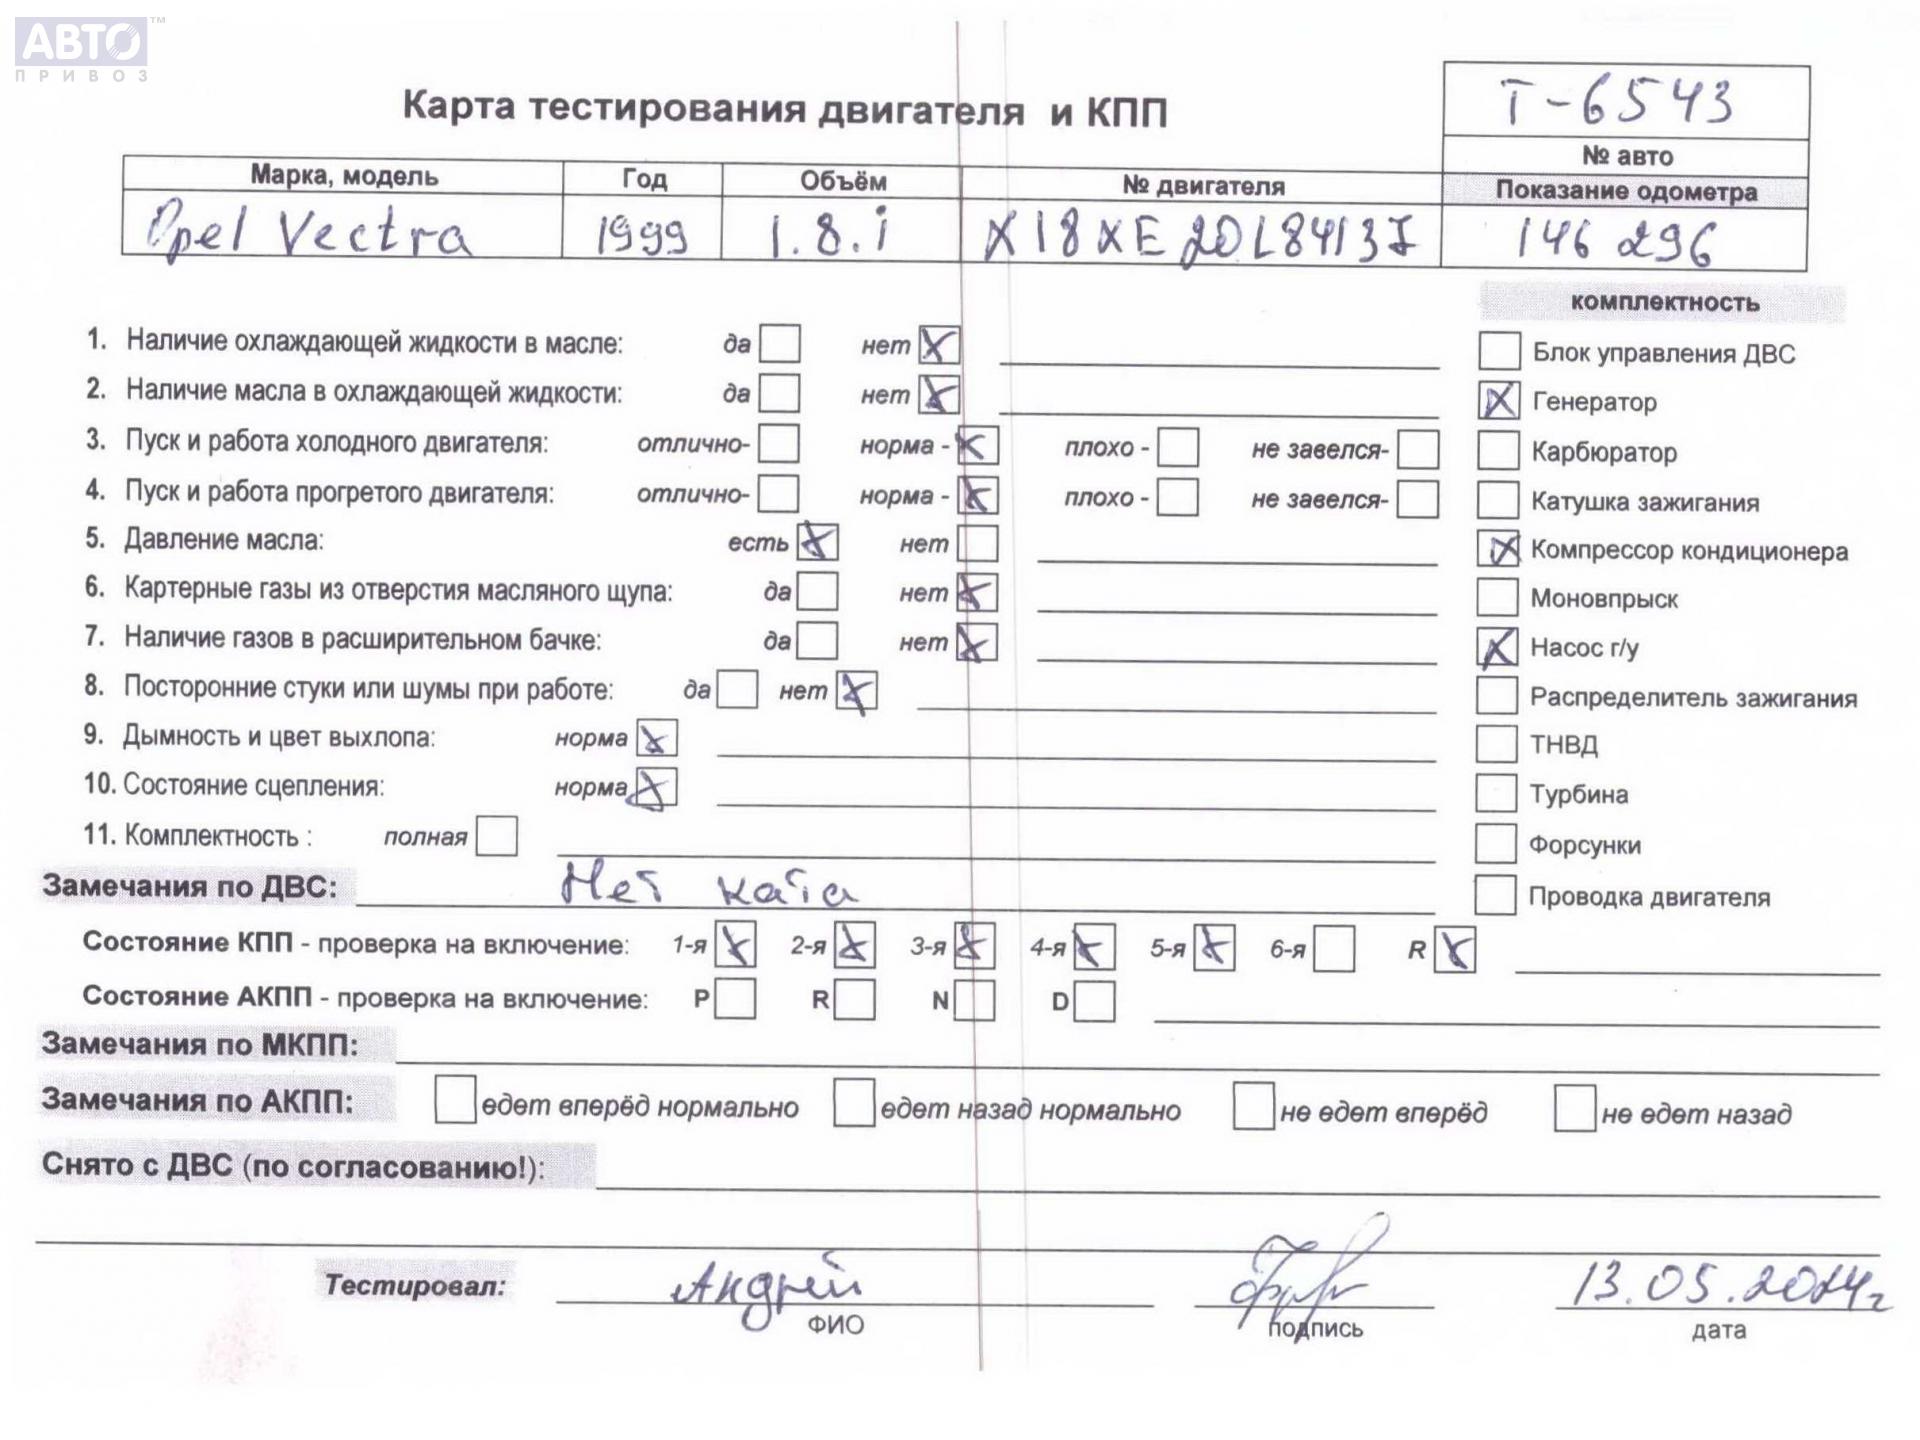 АВТО ™
ПРИВОЗ
Карта тестирования двигателя и КПП
Т-6543
№ авто
Марка, модель Год Объём № двигателя Показание одометра
Opel Vectra 1999 1.8.i X18XE20L84137 146 296
комплектность
1. Наличие охлаждающей жидкости в масле: да нет X
Блок управления ДВС
2. Наличие масла в охлаждающей жидкости: да нет X
X Генератор
3. Пуск и работа холодного двигателя: отлично- норма - X плохо - не завелся-
Карбюратор
4. Пуск и работа прогретого двигателя: отлично- норма - X плохо - не завелся-
Катушка зажигания
5. Давление масла: есть X нет
X Компрессор кондиционера
6. Картерные газы из отверстия масляного щупа: да нет X
Моновпрыск
7. Наличие газов в расширительном бачке: да нет X
X Насос г/у
8. Посторонние стуки или шумы при работе: да нет X
Распределитель зажигания
9. Дымность и цвет выхлопа: норма X
ТНВД
10. Состояние сцепления: норма X
Турбина
11. Комплектность : полная
Форсунки
Замечания по ДВС: Нет ката
Проводка двигателя
Состояние КПП - проверка на включение: 1-я X 2-я X 3-я X 4-я X 5-я X 6-я R X
Состояние АКПП - проверка на включение: P R N D
Замечания по МКПП:
Замечания по АКПП: едет вперёд нормально едет назад нормально не едет вперёд не едет назад
Снято с ДВС (по согласованию!):
Тестировал: Андрей 13.05.2014г
ФИО подпись дата